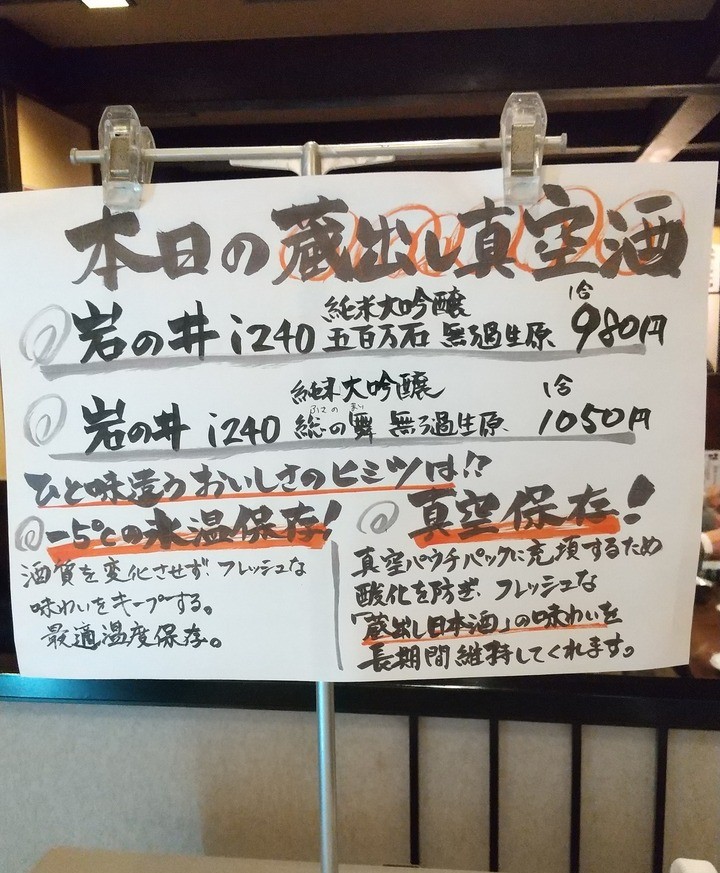 本日の蔵出し真空酒
岩の井 i240 純米大吟醸 五百万石 無ろ過生原 1合 980円
岩の井 i240 純米大吟醸 総の舞 ふさのまい 無ろ過生原 1合 1050円
ひと味違うおいしさのヒミツは!?
-5℃の氷温保存!
酒質を変化させず、フレッシュな
味わいをキープする。
最適温度保存。
真空保存!
真空パウチパックに充填するため
酸化を防ぎ、フレッシュな
「蔵出し日本酒」の味わいを
長期間維持してくれます。